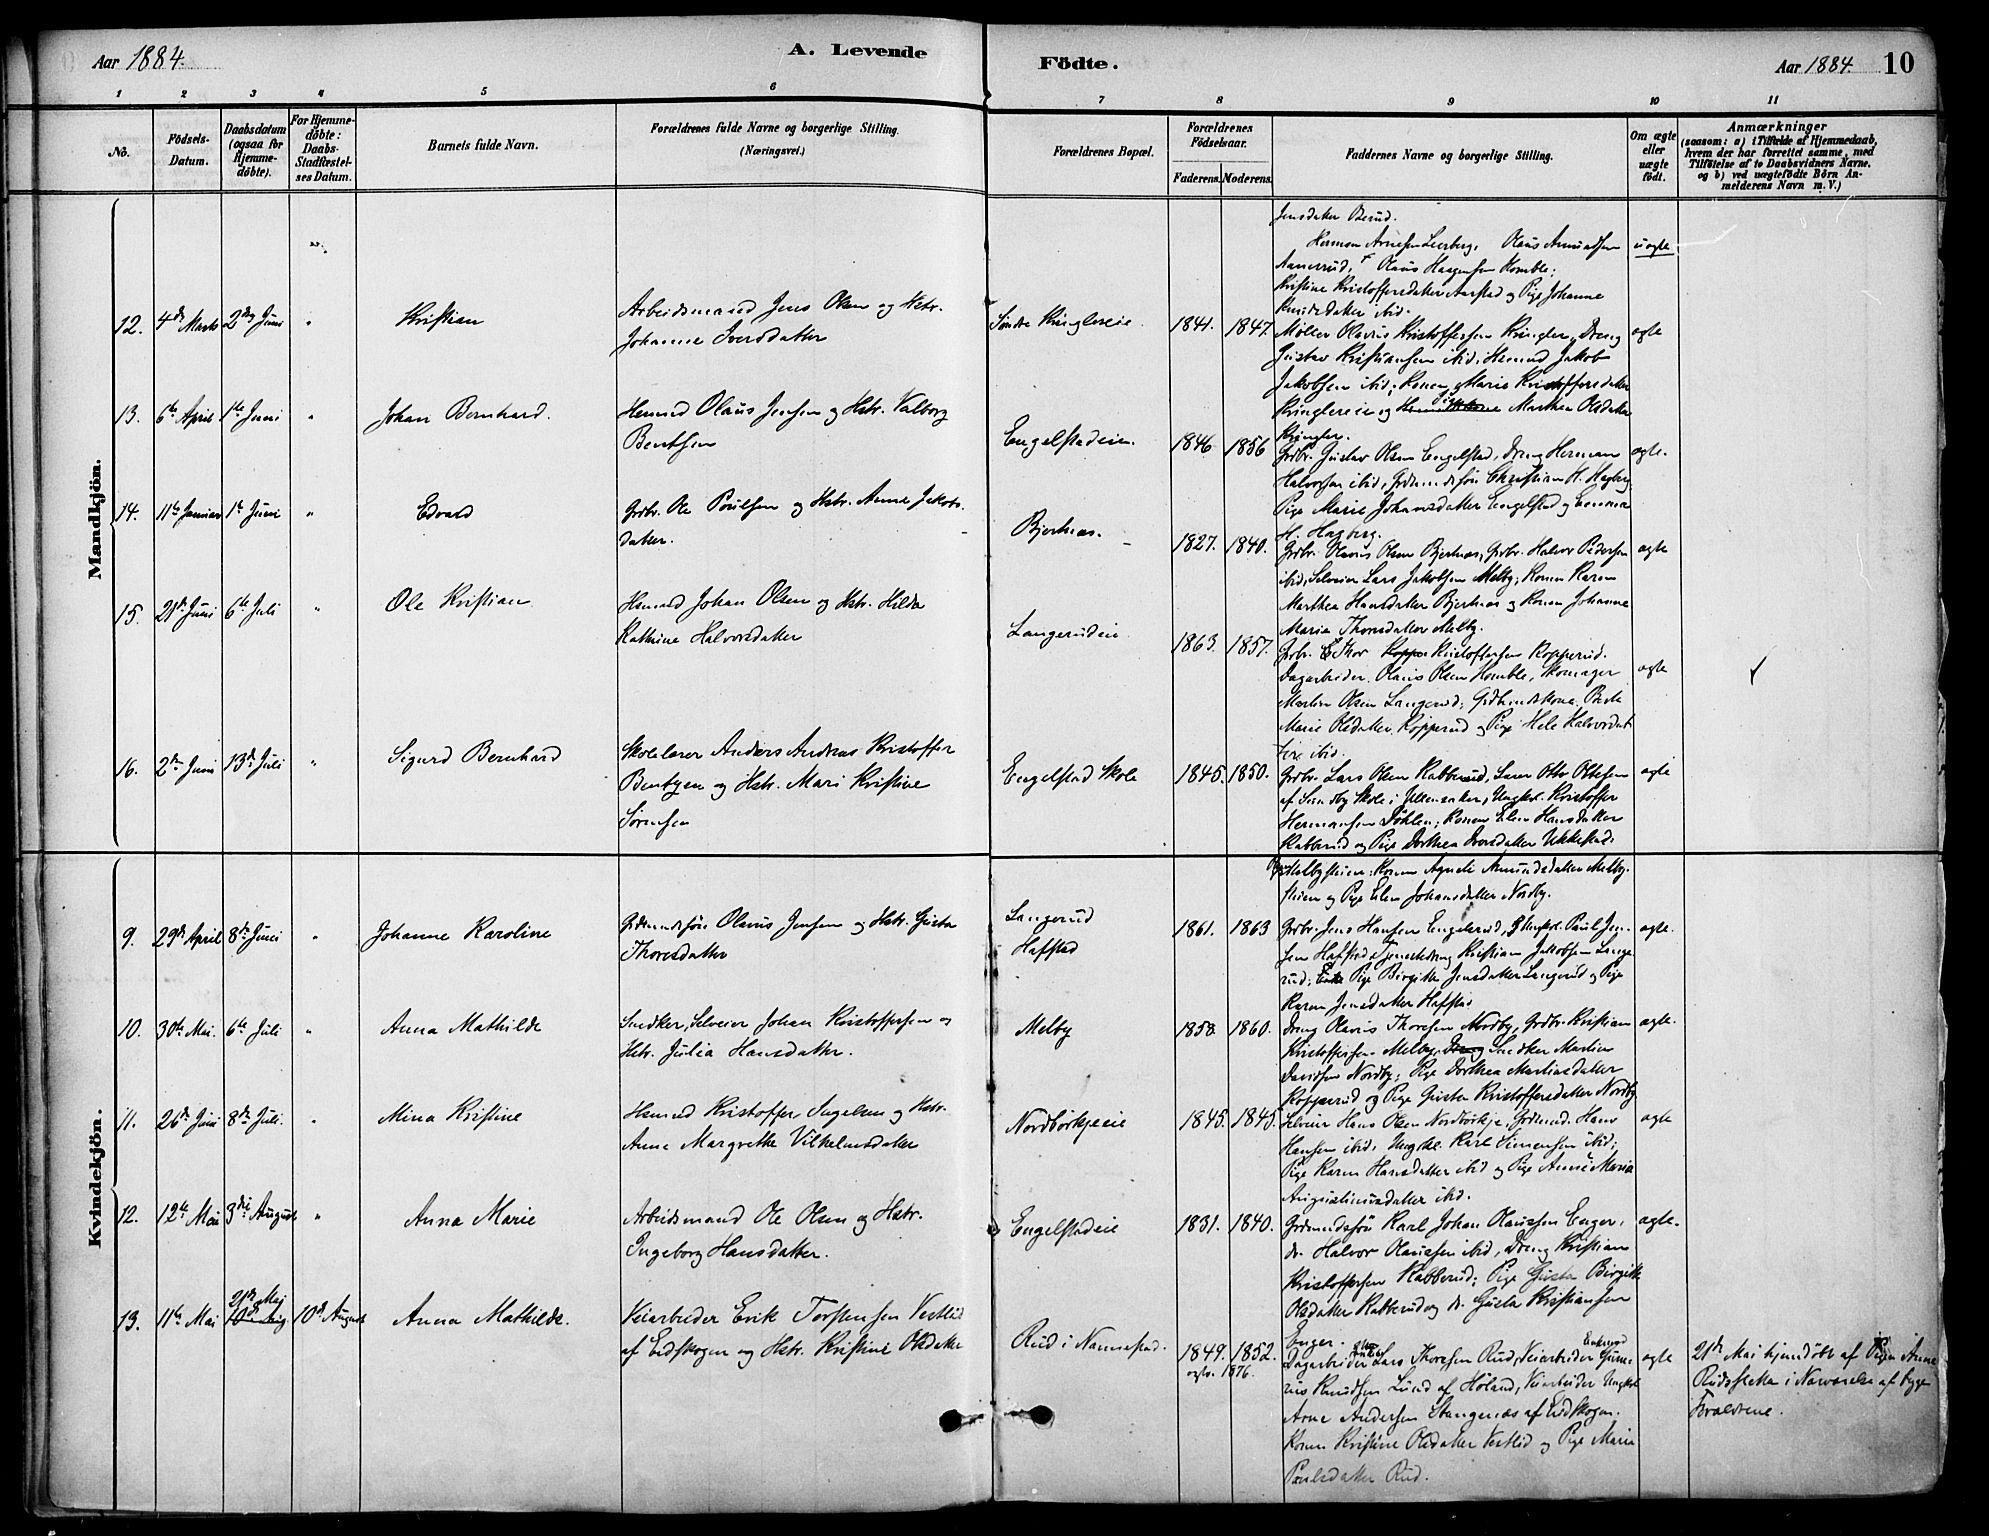 Aar 1884.
A. Levende
Födte.
Aar 1884. 10
1 2 3 4 5 6 7 8 9 10 11
No.
Födsels-
Datum.
Daabsdatum
(ogsaa for
Hjemme-
döbte).
For Hjemme-
döbte:
Daabs-
Stadfæstel-
ses Datum.
Barnets fulde Navn.
Forældrenes fulde Navne og borgerlige Stilling.
(Næringsvei.)
Forældrenes Bopæl.
Forældrenes
Födselsaar.
Faderens. Moderens.
Faddernes Navne og borgerlige Stilling.
Om ægte
eller
uægte
födt.
Anmærkninger
(saasom: a) i Tilfælde af Hjemmedaab,
hvem der har forrettet samme, med
Tilföielse af to Daabsvidners Navne,
og b) ved uægtefödte Börn An-
melderens Navn m. V.)
Mandkjön.
Jensdatter
Herman Arnesen Olaus Amundsen uægte
Olaus Haagensen Homble;
Kristine Kristoffersdatter Aarstad og Pige Johanne
Knudsdatter ibid.
12. 4de Marts 2den Juni " Kristian
Arbeidsmand Jens Olsen og Hstr.
Johanne Iversdatter
Söndre Kringlereie. 1841. 1847.
Möller Olavus Kristoffersen Kringler, Dreng ægte
Gustav Kristiansen ibid, Hsmand Jakob
Jakobsen ibid; Konen Marie Kristoffersdatter
Kringlereie og Pige Marthea Olsdatter
Kringler.
13. 6te April 1ste Juni " Johan Bernhard.
Hsmnd Olaus Jensen og Hstr. Valborg
Bentsen
Engelstadeie. 1846 1856
Grdbr. Gustav Olsen Engelstad, Dreng Herman ægte.
Halvorsen ibid, Grdmandssön Christian H. Hagberg
Pige Marie Johansdatter Engelstad og Emma
H. Hagberg.
14. 11te Januar 1ste Juni " Edvard
Grdbr. Ole Poulsen og Hstr. Anne Jakobs-
datter.
Bjerknæs. 1827. 1840.
Grdbr. Olavus Olsen Bjerknæs, Grdbr. Halvor Pedersen ægte
ibid, Selveier Lars Jakobsen Melby; Konen Karen
Marthea Hansdatter Bjerknæs og Konen Johanne
Marie Thorsdatter Melby.
15. 21de Juni 6te Juli " Ole Kristian
Hsmand Johan Olsen og Hstr. Hilda
Kathrine Halvorsdatter
Langerudeie 1863. 1857.
Grdbr. Thor Kristoffersen Kopperud.
Dagarbeider Olaus Olsen Homble, Skomager ægte
Martin Olsen Langerud; Grdmandskone Berte
Marie Olsdatter Kopperud og Pige Hele Halvorsdat-
ter ibid.
16. 2den Juni 13de Juli " Sigurd Bernhard
Skolelærer Anders Andreas Kristoffer
Bentzen og Hstr. Mari Kristine
Sörensen
Engelstad Skole 1845. 1850.
Grdbr. Lars Olsen Rabberud, Lærer Otto Ottesen ægte
af Sundby Skole i Ullensaker, Ungkl. Kristoffer
Hermansen Döhlen; Konen Elen Hansdatter
Rabberud og Pige Dorthea Iversdatter Ukkestad.
Kvindekjön.
Melbystuen; Konen Agnete Amundsdatter Melby-
stuen og Pige Elen Johansdatter Nordby.
9. 29de April 8de Juni " Johanne Karoline
Grdmandssön Olavus Jensen og Hstr. Gusta
Thoresdatter
Langerud
Hafstad
1861. 1863
Grdbr. Jens Hansen Engelsrud, Ungkl. Paul Jen- ægte.
sen Hafstad, Tjenestedreng Kristian Jakobsen Lange-
rud; Pige Birgitte Jensdatter Langerud og Pige
Karen Jensdatter Hafstad
10. 30te Mai. 6te Juli " Anna Mathilde
Snedker, Selveier Johan Kristoffersen og
Hstr. Julia Hansdatter.
Melby 1858 1860.
Dreng Olavus Thoresen Nordby, Grdbr. Kristian ægte.
Kristoffersen Melby, Snedker Martin
Davidsen Nordby; Pige Dorthea Martinsdatter
Kopperud og Pige Gusta Kristoffersdatter Nordby
11. 26de Juni 8de Juli. " Mina Kristine
Hsmnd Kristoffer Ingelsen og Hstr.
Anne Margrethe Vilhelmsdatter
Nordbörkjeeie 1845. 1845.
Selveier Hans Olsen Nordbörkje, Grdmand. Hans ægte
Hansen ibid, Ungkl. Karl Simensen ibid;
Pige Karen Hansdatter ibid og Pige Anne Marie
Angustinusdatter ibid.
12. 12te Mai 3die August " Anna Marie
Arbeidsmand Ole Olsen og Hstr.
Ingeborg Hansdatter.
Engelstadeie 1831. 1840.
Grdmandssön Karl Johan Olaussen Enger, ægte.
do. Halvor Olaussen ibid, Dreng Kristian
Kristoffersen Rabberud; Pige Gusta Birgitte
Olsdatter Rabberud og do. Gusta Kristiansen
Enger.
13. 11te Mai 21de Maj 10de Aug. 10de August Anna Mathilde.
Veiarbeider Erik Torstensen Vestlid
af Eidskogen og Hstr. Kristine Olsdatter
Rud i Nannestad. 1849. 1852.
egtv. 1876.
Dagarbeider Lars Thoresen Rud, Veiarbeider Enkemd Gune- ægte
rius Knudsen Lund af Höland, Veiarbeider Ungkl.
Arne Andersen Stangenæs af Eidskogen.
Konen Kristine Olsdatter Vestlid og Pige Marie
Paulsdatter Rud.
21de Mai hjemdöbt af Pigen Anne
Rudssletta i Nærværelse af begge
Forældrene.